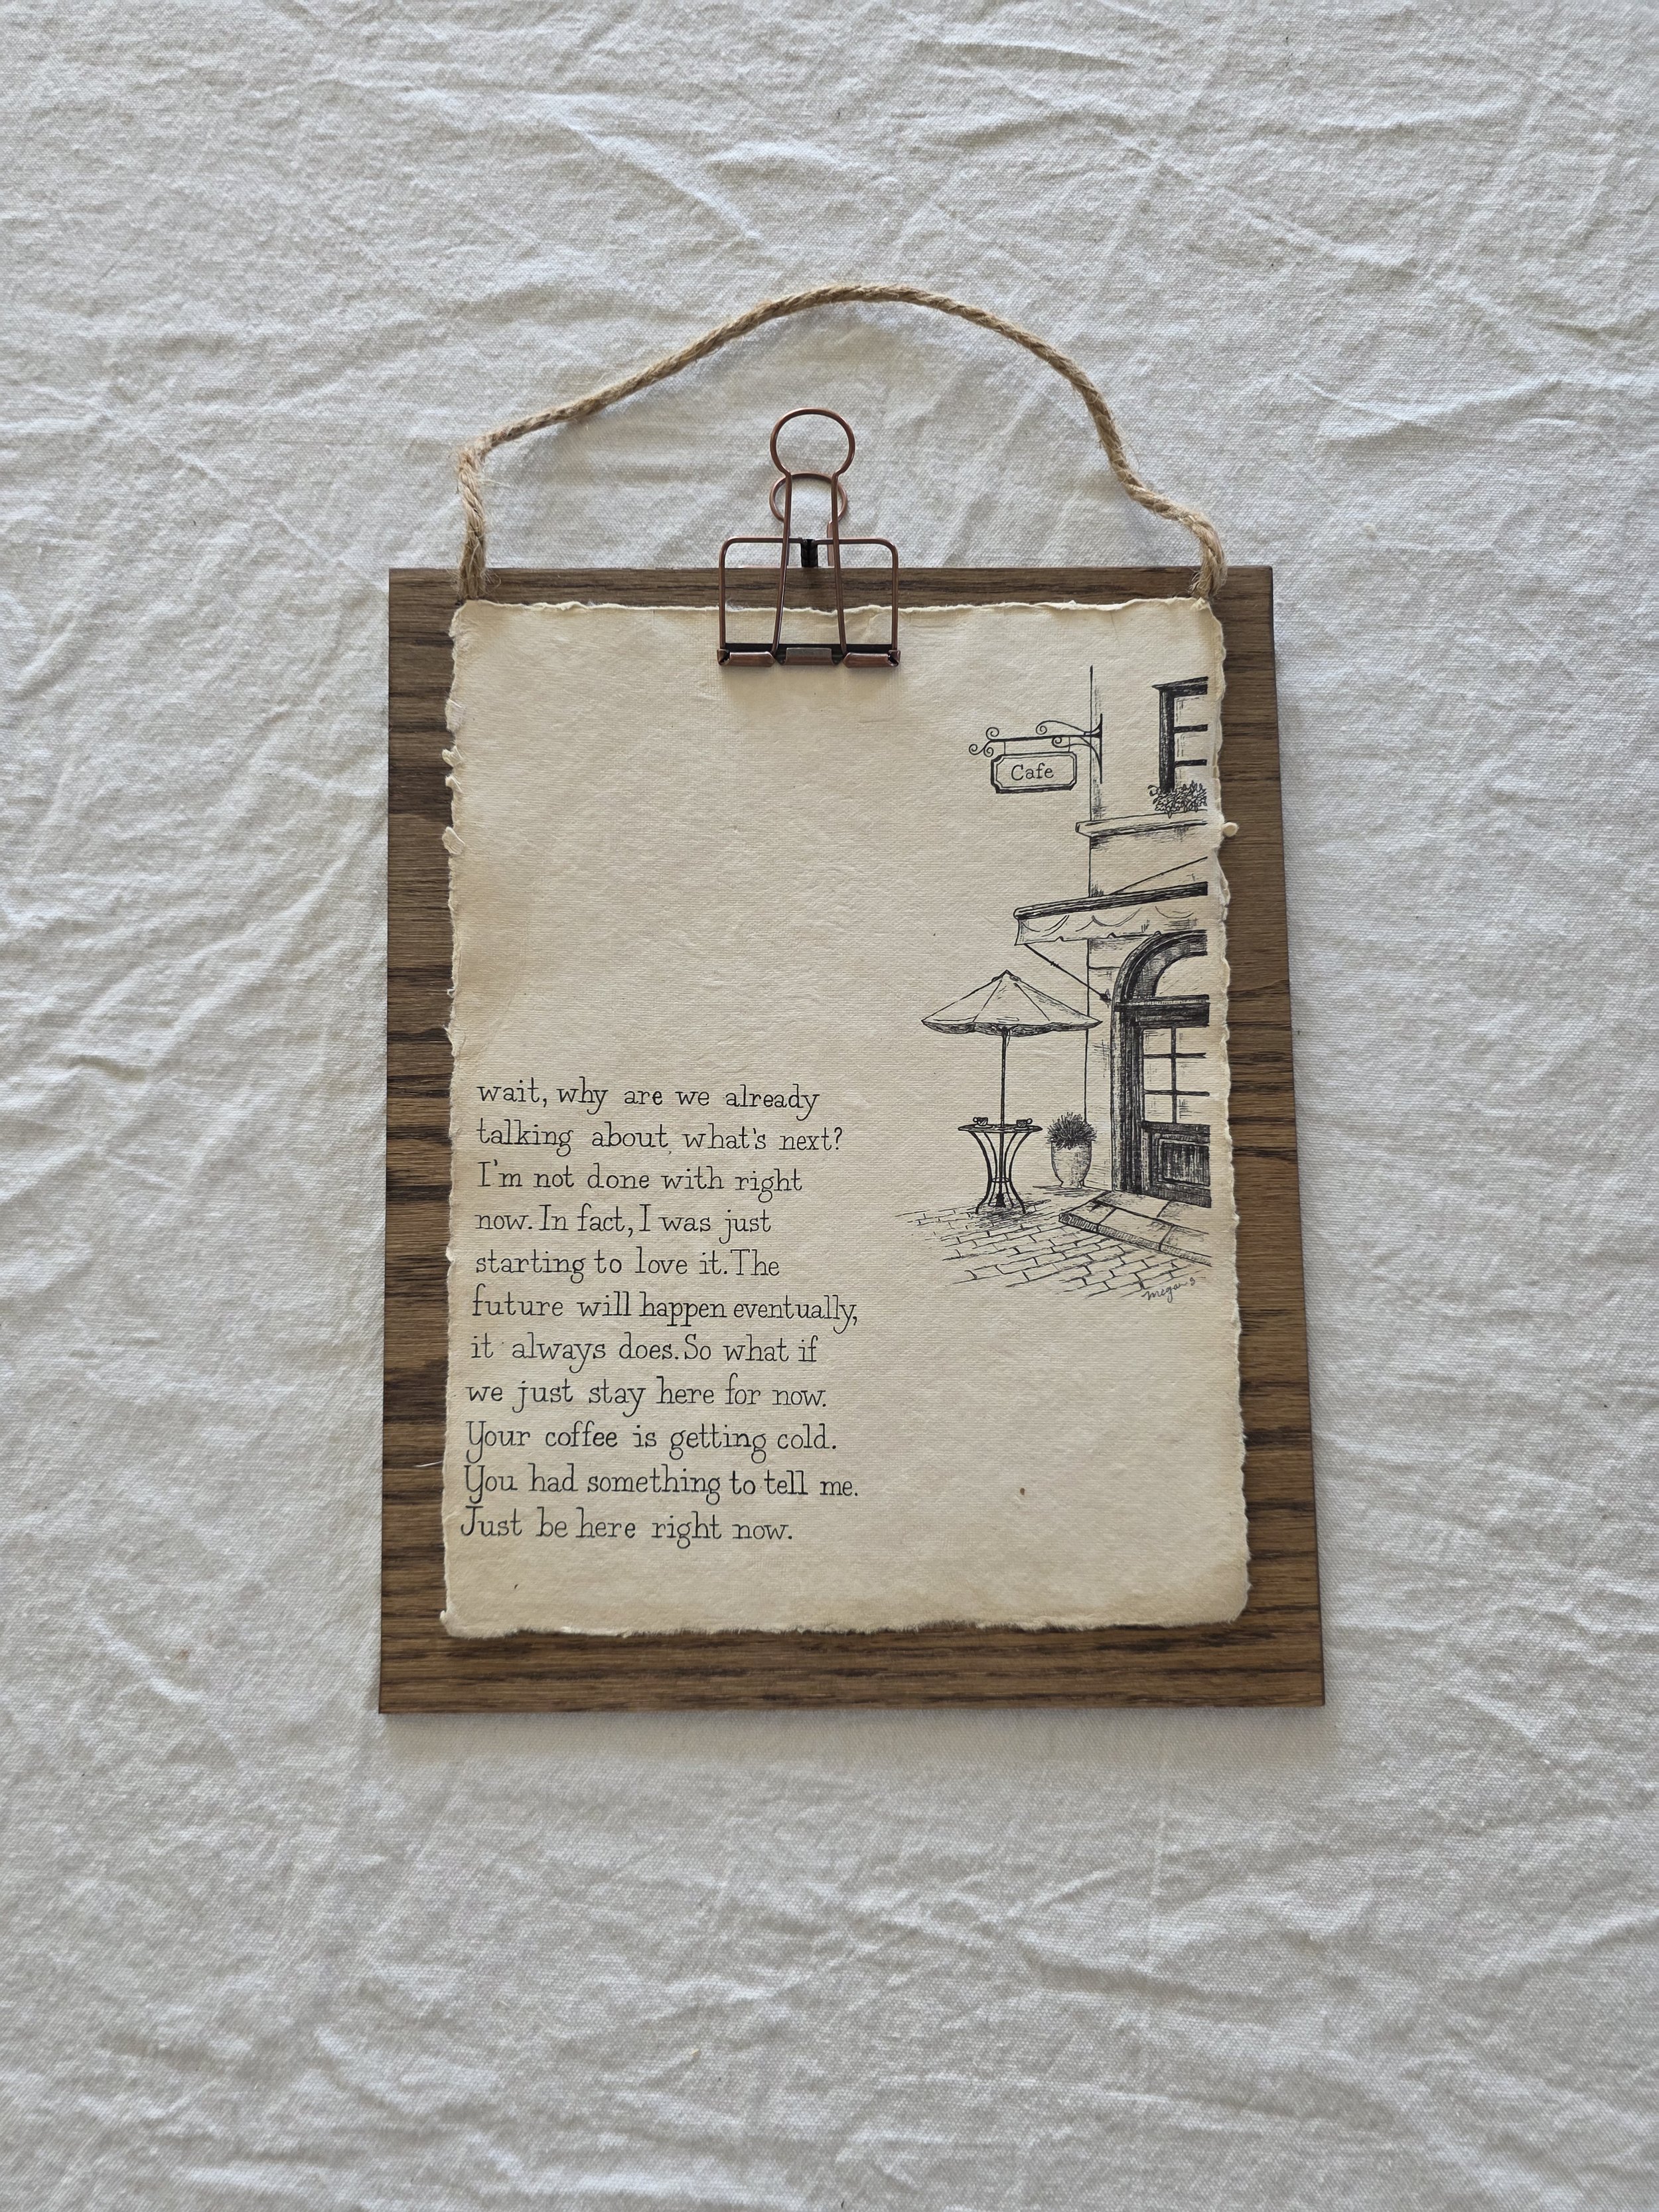 Cafe
wait, why are we already
talking about what's next?
I'm not done with right
now. In fact, I was just
starting to love it. The
future will happen eventually,
it always does. So what if
we just stay here for now.
Your coffee is getting cold.
You had something to tell me.
Just be here right now.
megan s